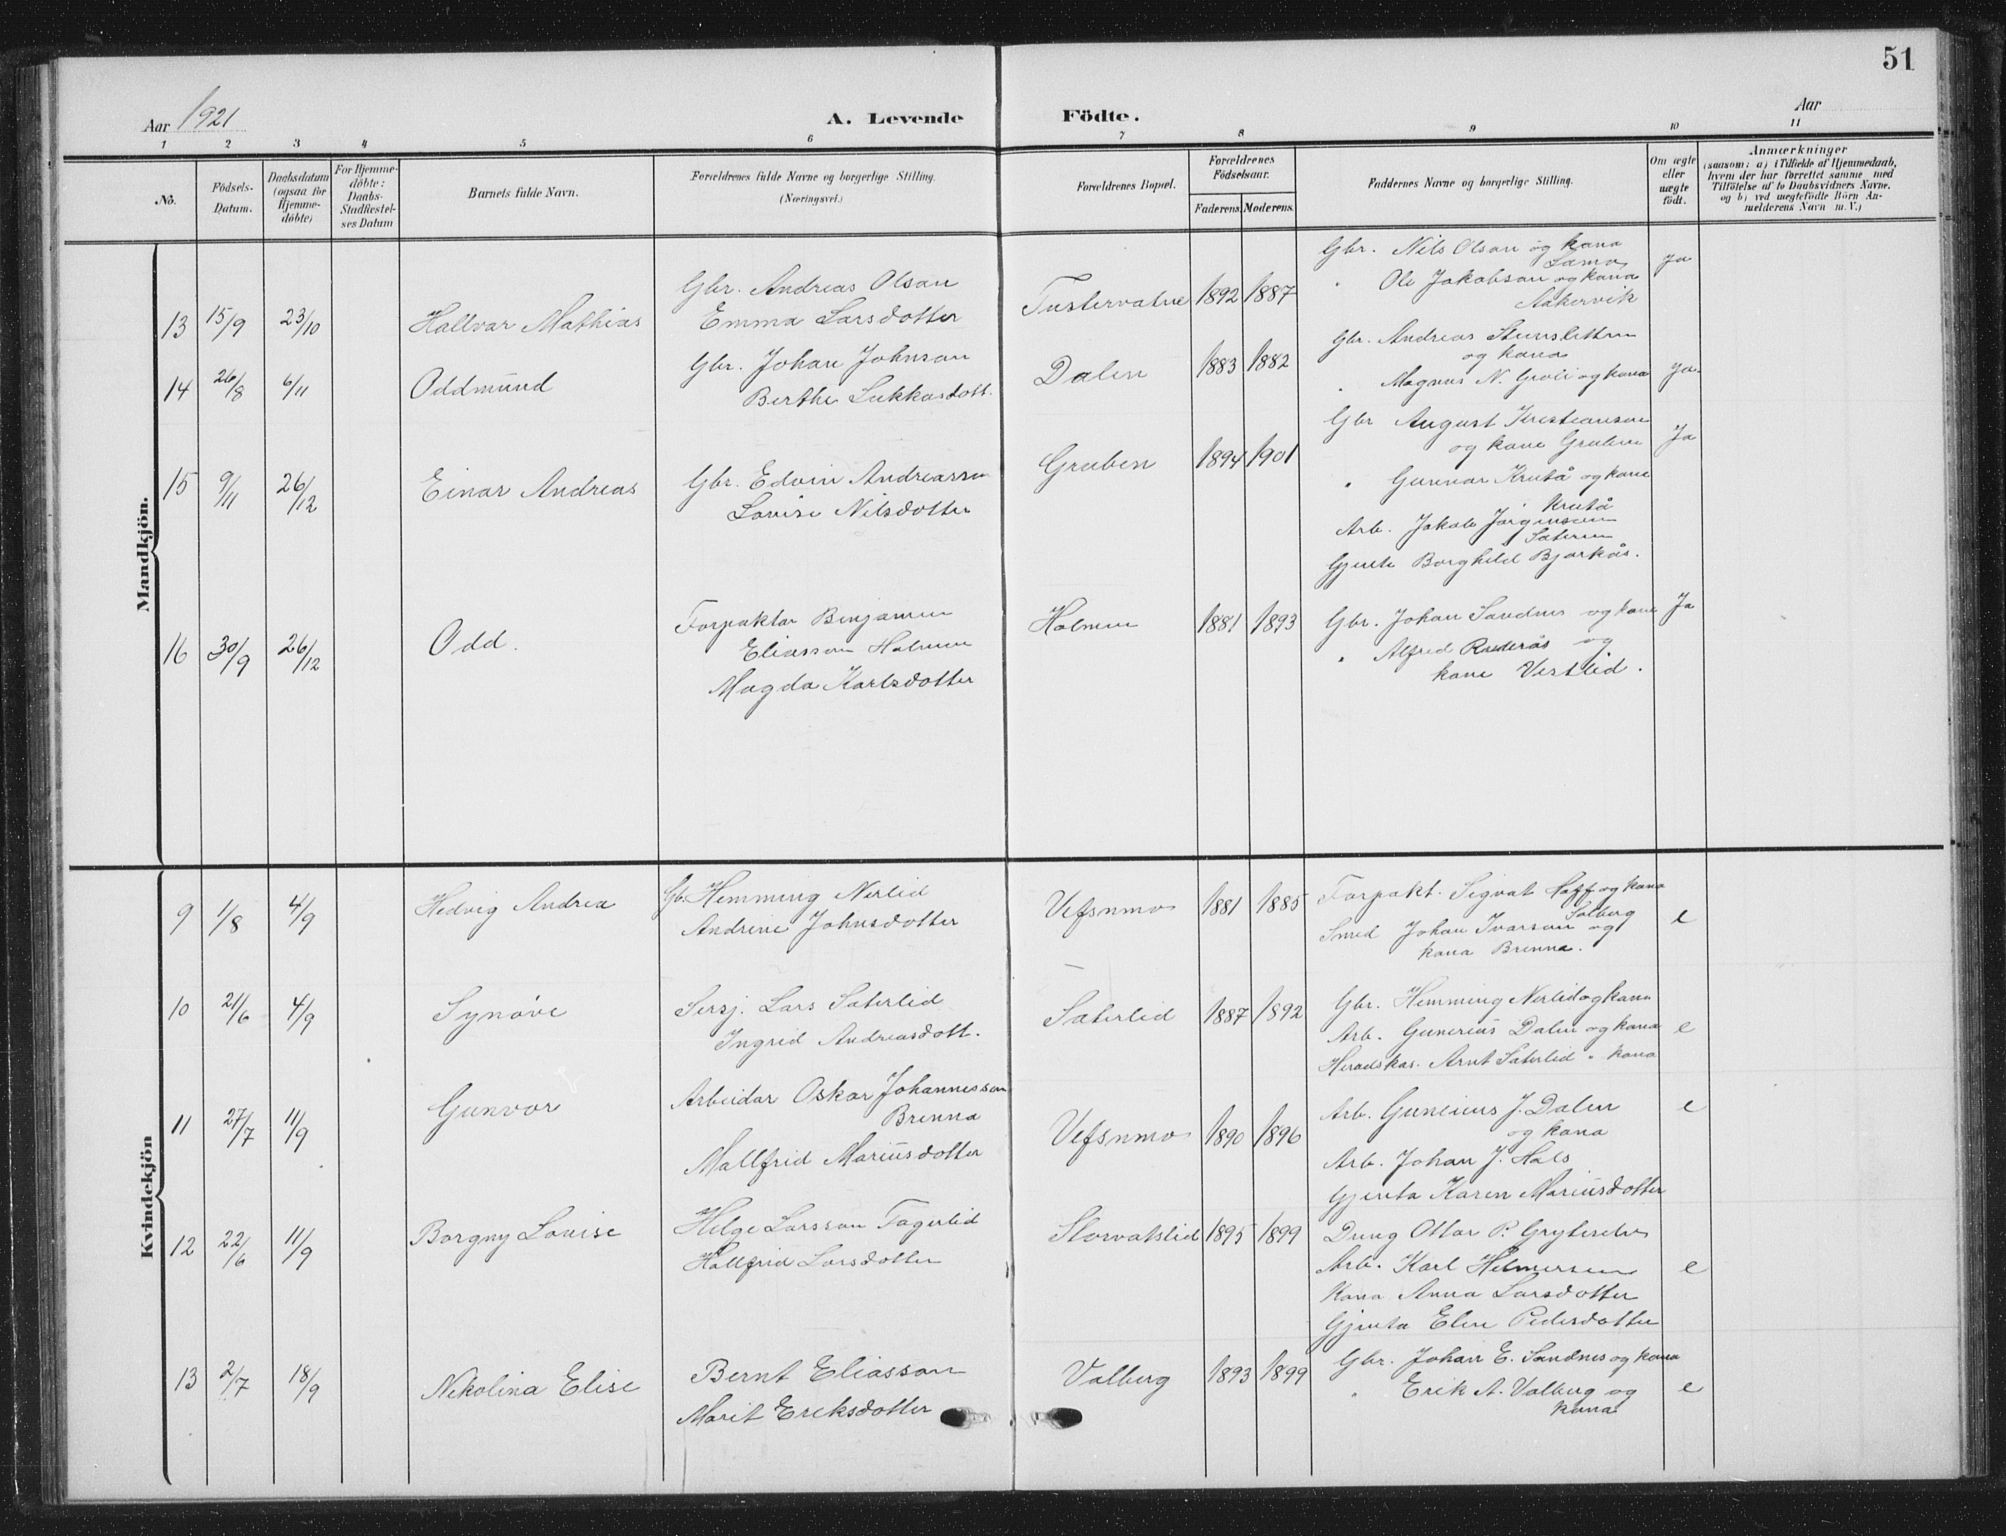 51
Aar 1921
A. Levende Födte.
Aar
1 2 3 4 5 6 7 8 9 10 11
No.
Födsels-Datum.
Daabsdatum (ogsaa for Hjemme-döbte)
For Hjemme-döbte: Daabs-Stadfæstel-ses Datum
Barnets fulde Navn.
Forældrenes fulde Navne og borgerlige Stilling. (Næringsvei.)
Forældrenes Bopæl.
Forældrenes Födselsaar.
Faderens. Moderens.
Faddernes Navne og borgerlige Stilling.
Om ægte eller uægte födt.
Anmærkninger
(saasom: a) i Tilfælde af Hjemmedaab,
hvem der har forrettet samme med
Tilföielse af to Daabsvidners Navne,
og b) ved uægtefödte Börn An-
melderens Navn m. V.)
Mandkjön.
13 15/9 23/10 Hallvar Mathias
Gbr. Andreas Olsan
Emma Larsdotter
Tustervatne 1892 1887
Gbr. Nils Olsan og kana
" Ole Jakobsan og kana
Aakervik
Ja
14 26/8 6/11 Oddmund
Gbr. Johan Johnsan
Berthe Lukkasdott.
Dalen 1883 1882
Gbr. Andreas
og kana
" Magnus N. og kana
Ja.
15 9/11 26/12 Einar Andreas
Gbr. Edvin Andreassen
Lovise Nilsdotter
Gruben 1894 1901
Gbr August Kristiansen
og kane Gruben
" Gunnar Krutå og kane
Krutå
Arb. Jakob Jørgensen
Gjente Borghild Bjørkås.
Ja
16 30/9 26/12 Odd.
Forpaktar Benjamin
Eliassen Holmen
Magda Karlsdotter
Holmen 1881 1893
Gbr. Johan Sandnes og kane
" Alfred Røderås og
kane Vestlid.
Ja
Kvindekjön
9 1/8 4/9 Hedvig Andrea
Gb. Hemming Nerlid
Andrine Johnsdotter
Vefsnmo 1881 1885
Forpakt. Sigvat Hoff og kana
Solberg
Smed Johan Ivarsan og
kana Brenna.
e
10 21/6 4/9 Synøve
Sersj. Lars Sæterlid
Ingrid Andreasdott.
Sæterlid 1887 1892
Gbr. Hemming Nerlid og kana
Arb. Gunerius Dalen og kana
Heradskas. Arnt Sæterlid " kana
e
11 27/7 11/9 Gunvor
Arbeidar Oskar Johannessen
Brenna
Mallfrid Mariusdotter
Vefsnmo 1890 1896
Arb. Gunerius J. Dalen
og kana
Arb. Johan J. Hals
Gjenta Karen Mariusdotter
e
12 22/6 11/9 Borgny Lovise
Helge Larsson Fagerlid
Hallfrid Larsdotter
Storvatslid 1895 1899
Dreng Ottar P. Gryteselv
Arb. Karl Helmersen
Kana Anna Larsdotter
Gjenta Elen Pedersdotter
e
13 2/7 18/9 Nikolina Elise
Bernt Eliassan
Marit Eriksdotter
Valberg 1893 1899
Gbr. Johan E. Sandnes og kana
" Erik A. Valberg og
kana
e